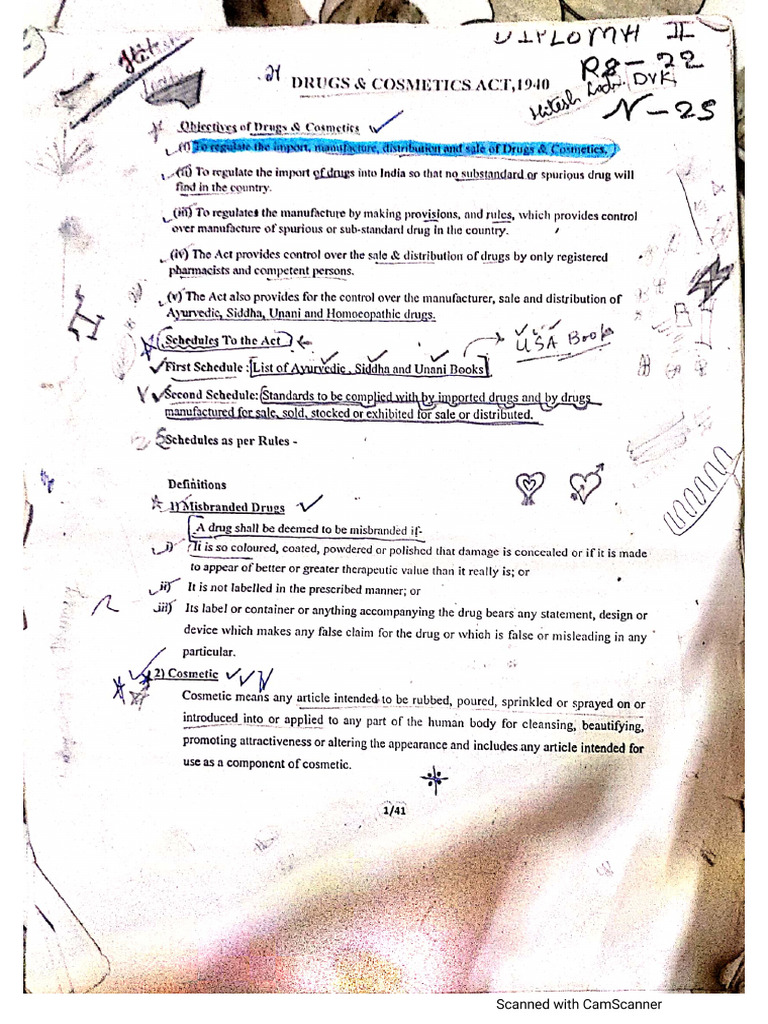 DIPLOMA II
Hitesh
R8-22
21 DRUGS & COSMETICS ACT,1940
Hitesh DVK
N-25
Objectives of Drugs & Cosmetics
(i) To regulate the import, manufacture, distribution and sale of Drugs & Cosmetics.
(ii) To regulate the import of drugs into India so that no substandard or spurious drug will
find in the country.
(iii) To regulates the manufacture by making provisions, and rules, which provides control
over manufacture of spurious or sub-standard drug in the country.
(iv) The Act provides control over the sale & distribution of drugs by only registered
pharmacists and competent persons.
(v) The Act also provides for the control over the manufacturer, sale and distribution of
Ayurvedic, Siddha, Unani and Homoeopathic drugs.
Schedules To the Act
USA Book
First Schedule : List of Ayurvedic, Siddha and Unani Books
Second Schedule: Standards to be complied with by imported drugs and by drugs
manufactured for sale, sold, stocked or exhibited for sale or distributed.
Schedules as per Rules -
Definitions
1) Misbranded Drugs
A drug shall be deemed to be misbranded if-
i) It is so coloured, coated, powdered or polished that damage is concealed or if it is made
to appear of better or greater therapeutic value than it really is; or
ii) It is not labelled in the prescribed manner; or
iii) Its label or container or anything accompanying the drug bears any statement, design or
device which makes any false claim for the drug or which is false or misleading in any
particular.
2) Cosmetic
Cosmetic means any article intended to be rubbed, poured, sprinkled or sprayed on or
introduced into or applied to any part of the human body for cleansing, beautifying,
promoting attractiveness or altering the appearance and includes any article intended for
use as a component of cosmetic.
1/41
Scanned with CamScanner